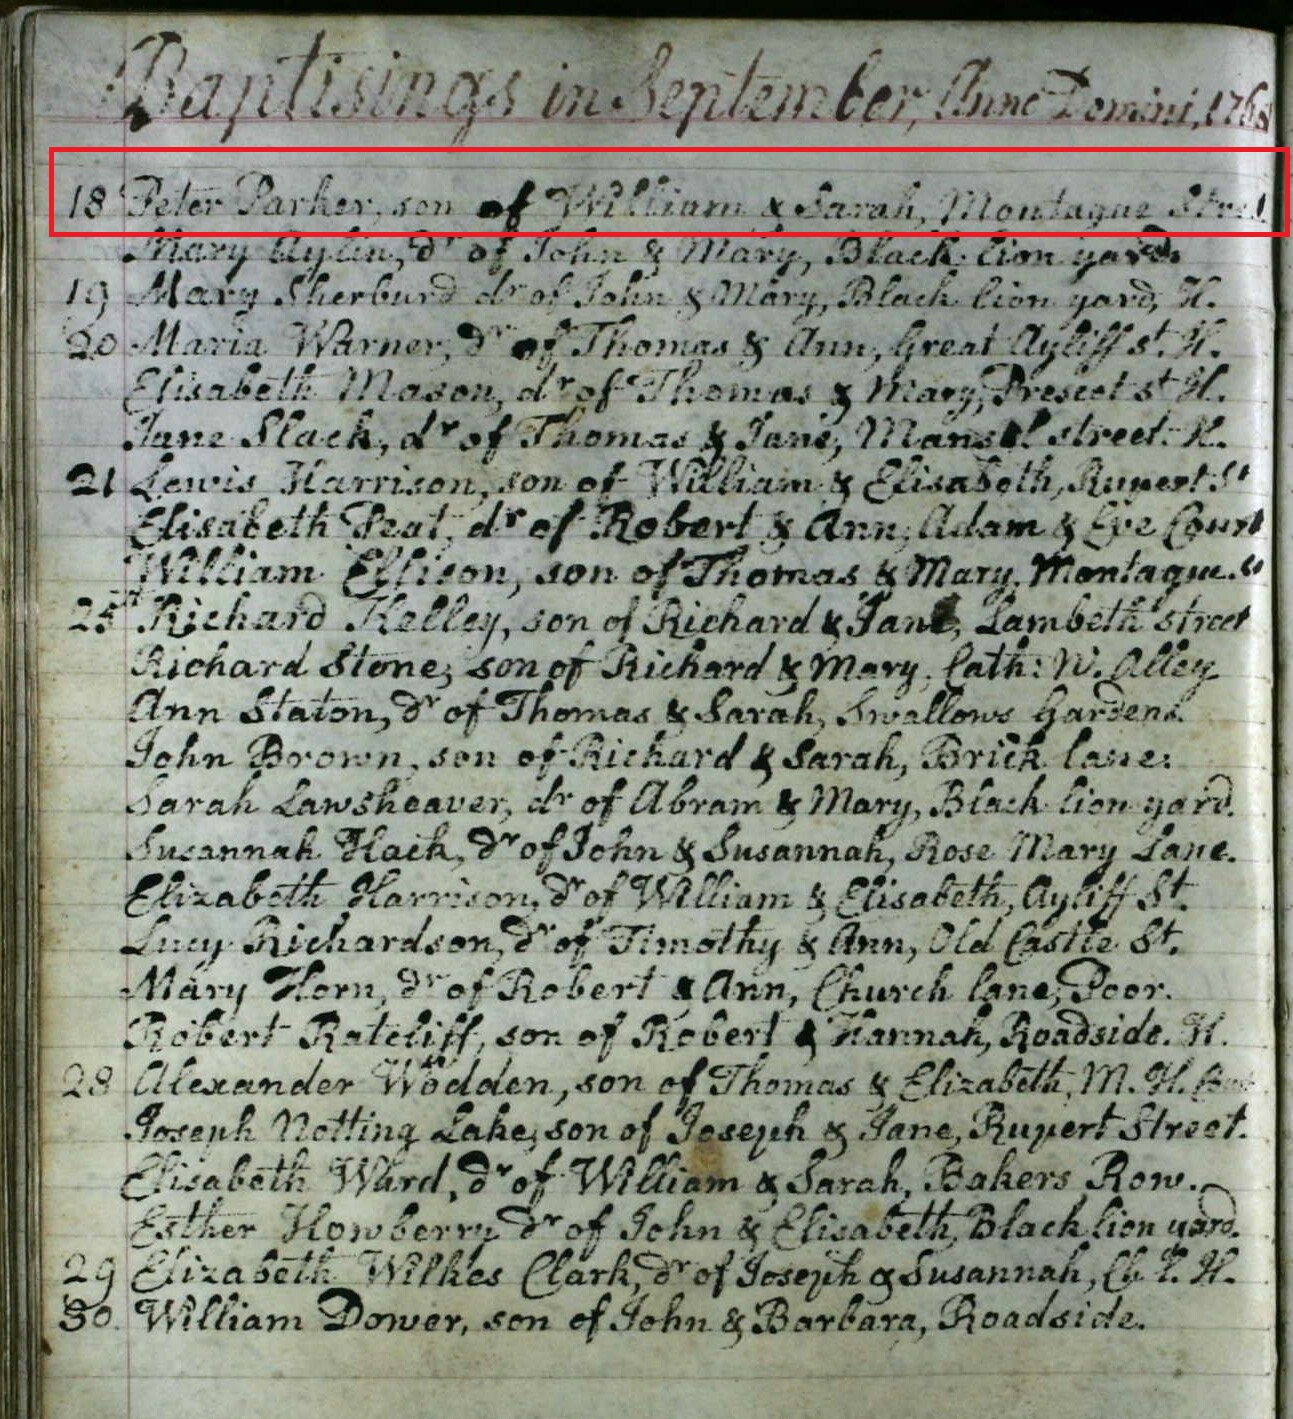 Baptisings in September, Anno Domini, 1768
18 Peter Parker, son of William & Sarah, Montague Street
Mary Aylin, dr of John & Mary, Black lion yard.
19 Mary Sherburd dr of John & Mary, Black lion yard, H.
20 Maria Warner, dr of Thomas & Ann, Great Ayliff st. H.
Elisabeth Mason, dr of Thomas & Mary, Prescot st H.
Jane Slack, dr of Thomas & Jane, Mansel street. H.
21 Lewis Harrison, son of William & Elisabeth, Rupert St
Elisabeth Peat, dr of Robert & Ann, Adam & Eve Court
William Ellison, son of Thomas & Mary, Montague St
25 Richard Kelley, son of Richard & Jane, Lambeth street
Richard Stone, son of Richard & Mary, Cath: W. Alley
Ann Staton, dr of Thomas & Sarah, Swallows Gardens.
John Brown, son of Richard & Sarah, Brick lane.
Sarah Lawsheaver, dr of Abram & Mary, Black lion yard.
Susannah Haik, dr of John & Susannah, Rose Mary Lane.
Elizabeth Harrison, dr of William & Elisabeth, Ayliff St.
Lucy Richardson, dr of Timothy & Ann, Old Castle St.
Mary Horn, dr of Robert & Ann, Church lane, Poor.
Robert Ratcliff, son of Robert & Hannah, Roadside. H.
28 Alexander Wodden, son of Thomas & Elizabeth, M. H.
Joseph Notting Lake, son of Joseph & Jane, Rupert Street.
Elisabeth Ward, dr of William & Sarah, Bakers Row.
Esther Howberry dr of John & Elisabeth, Black lion yard.
29 Elizabeth Wilkes Clark, dr of Joseph & Susannah, Ch. L. H.
30. William Dower, son of John & Barbara, Roadside.